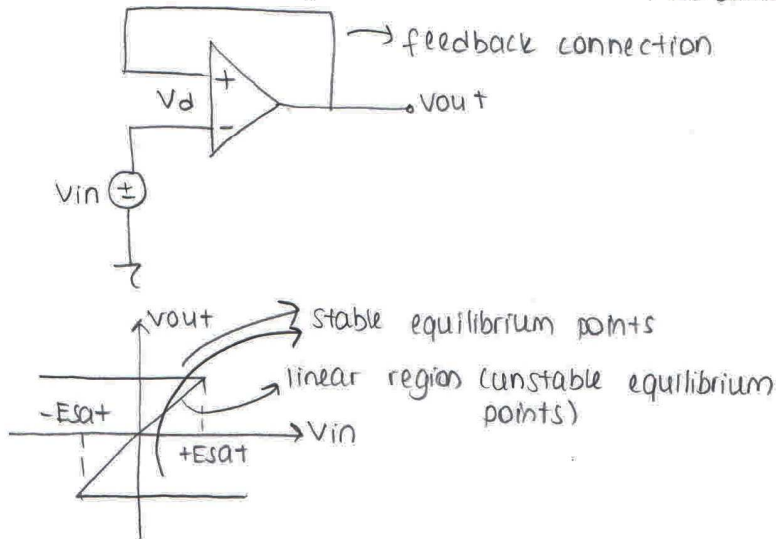 feedback connection
+
Vd
-
Vout
Vin
±
Vout
stable equilibrium points
linear region (unstable equilibrium
points)
-Esat
+Esat
Vin